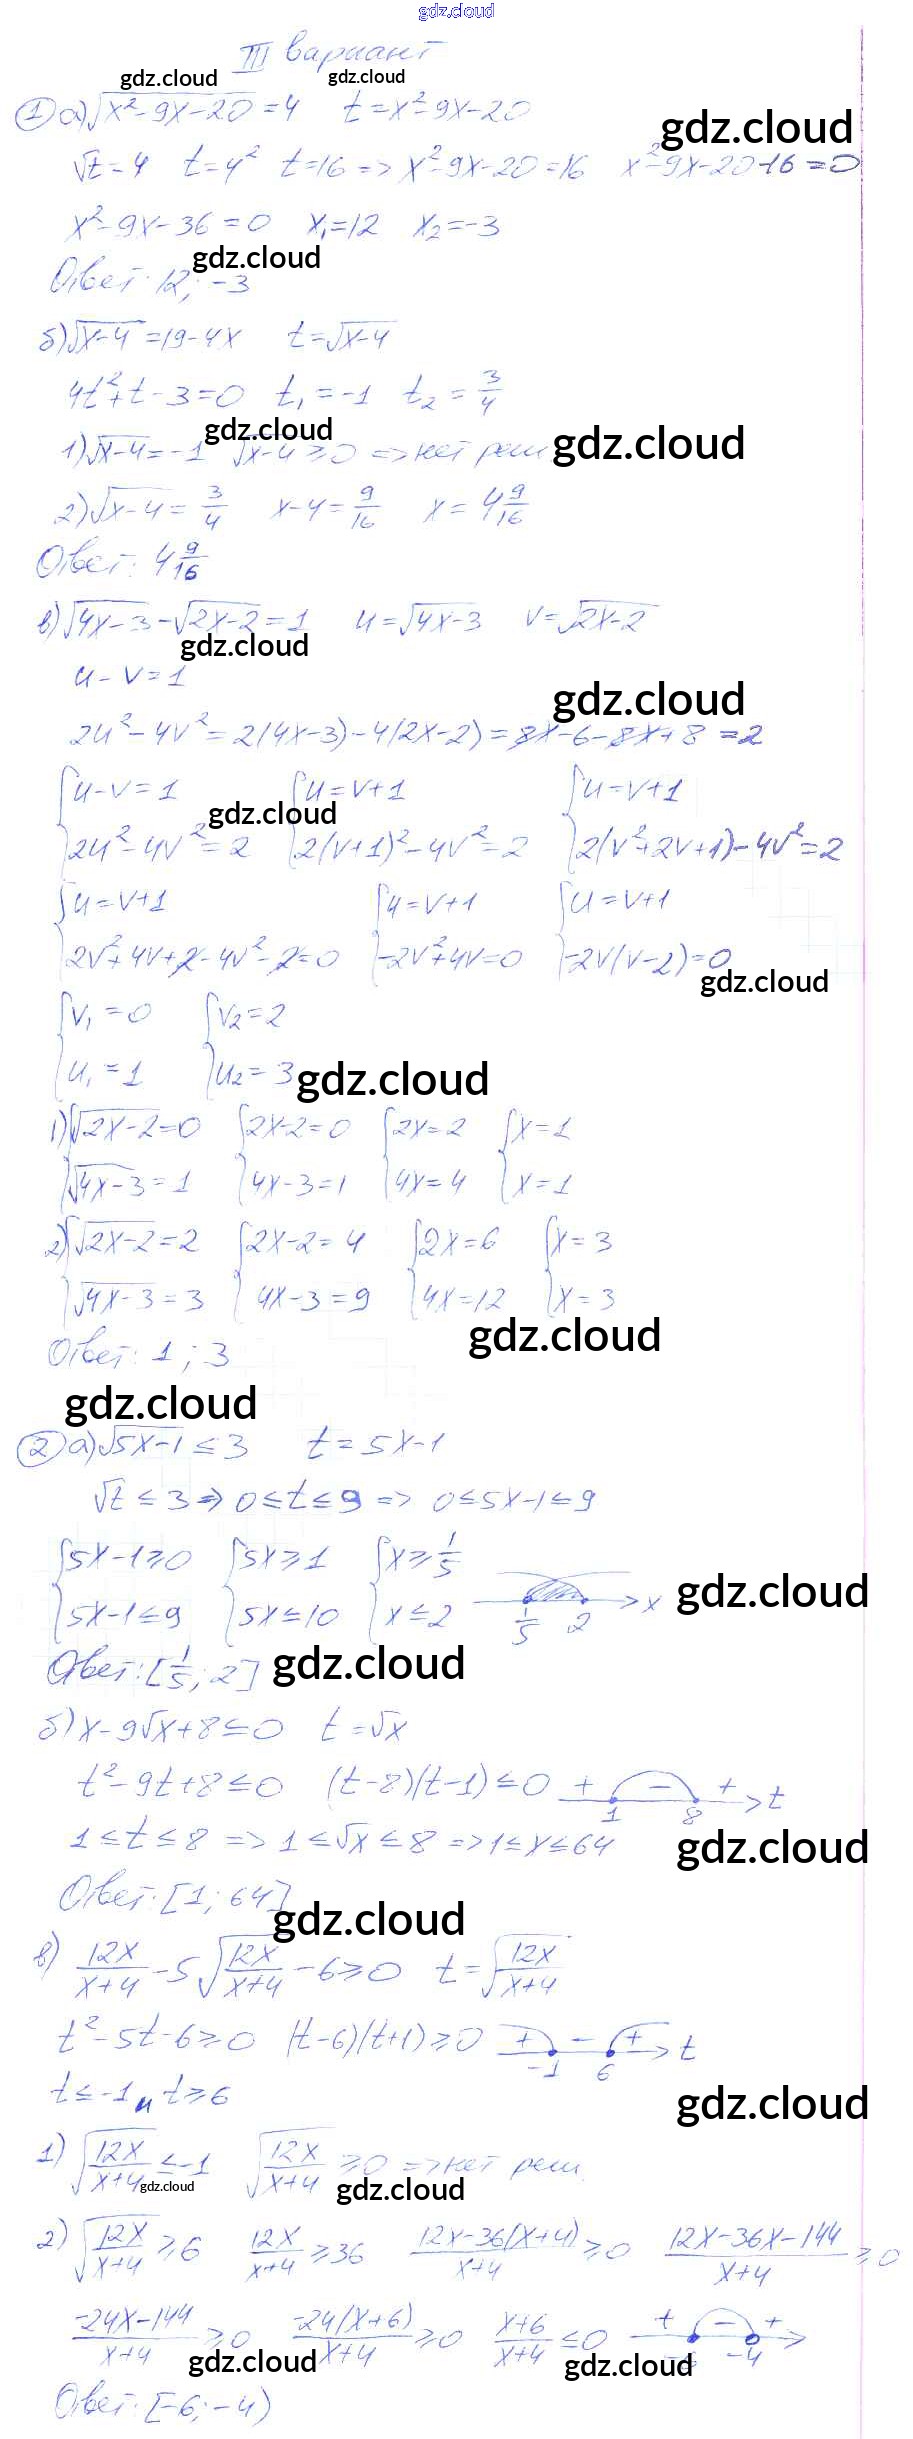 gdz.cloud
III вариант
gdz.cloud gdz.cloud
① а) √(x²-9x-20) = 4   t = x²-9x-20
gdz.cloud
√t = 4   t = 4²   t = 16 => x²-9x-20 = 16   x²-9x-20-16 = 0
x²-9x-36 = 0   x₁ = 12   x₂ = -3
gdz.cloud
Ответ: 12; -3
б) √(x-4) = 19-4x   t = √(x-4)
4t²+t-3 = 0   t₁ = -1   t₂ = 3/4
gdz.cloud gdz.cloud
1) √(x-4) = -1   √(x-4) ≥ 0 => нет реш
2) √(x-4) = 3/4   x-4 = 9/16   x = 4 9/16
Ответ: 4 9/16
в) √(4x-3) - √(2x-2) = 1   u = √(4x-3)   v = √(2x-2)
gdz.cloud
u - v = 1
gdz.cloud
2u²-4v² = 2(4x-3)-4(2x-2) = 8x-6-8x+8 = 2
{u-v = 1   {u = v+1   {u = v+1
gdz.cloud
{2u²-4v² = 2   {2(v+1)²-4v² = 2   {2(v²+2v+1)-4v² = 2
{u = v+1   {u = v+1   {u = v+1
{2v²+4v+2-4v²-2 = 0   {-2v²+4v = 0   {-2v(v-2) = 0
gdz.cloud
{v₁ = 0   {v₂ = 2
{u₁ = 1   {u₂ = 3
gdz.cloud
1) {√(2x-2) = 0   {2x-2 = 0   {2x = 2   {x = 1
{√(4x-3) = 1   {4x-3 = 1   {4x = 4   {x = 1
2) {√(2x-2) = 2   {2x-2 = 4   {2x = 6   {x = 3
{√(4x-3) = 3   {4x-3 = 9   {4x = 12   {x = 3
gdz.cloud
Ответ: 1; 3
gdz.cloud
② а) √(5x-1) ≤ 3   t = 5x-1
√t ≤ 3 => 0 ≤ t ≤ 9 => 0 ≤ 5x-1 ≤ 9
{5x-1 ≥ 0   {5x ≥ 1   {x ≥ 1/5
gdz.cloud
{5x-1 ≤ 9   {5x ≤ 10   {x ≤ 2   1/5   2   x
Ответ: [1/5; 2]
gdz.cloud
б) x-9√x+8 ≤ 0   t = √x
t²-9t+8 ≤ 0   (t-8)(t-1) ≤ 0   + - +   1   8   t
1 ≤ t ≤ 8 => 1 ≤ √x ≤ 8 => 1 ≤ x ≤ 64
gdz.cloud
Ответ: [1; 64]
gdz.cloud
в) 12x/(x+4) - 5√(12x/(x+4)) - 6 ≥ 0   t = √(12x/(x+4))
t²-5t-6 ≥ 0   (t-6)(t+1) ≥ 0   + - +   -1   6   t
t ≤ -1 и t ≥ 6
gdz.cloud
1) √(12x/(x+4)) ≤ -1   √(12x/(x+4)) ≥ 0 => нет реш
gdz.cloud gdz.cloud
2) √(12x/(x+4)) ≥ 6   12x/(x+4) ≥ 36   (12x-36(x+4))/(x+4) ≥ 0   (12x-36x-144)/(x+4) ≥ 0
(-24x-144)/(x+4) ≥ 0   -24(x+6)/(x+4) ≥ 0   (x+6)/(x+4) ≤ 0   + - +   -6   -4
gdz.cloud gdz.cloud
Ответ: [-6; -4)